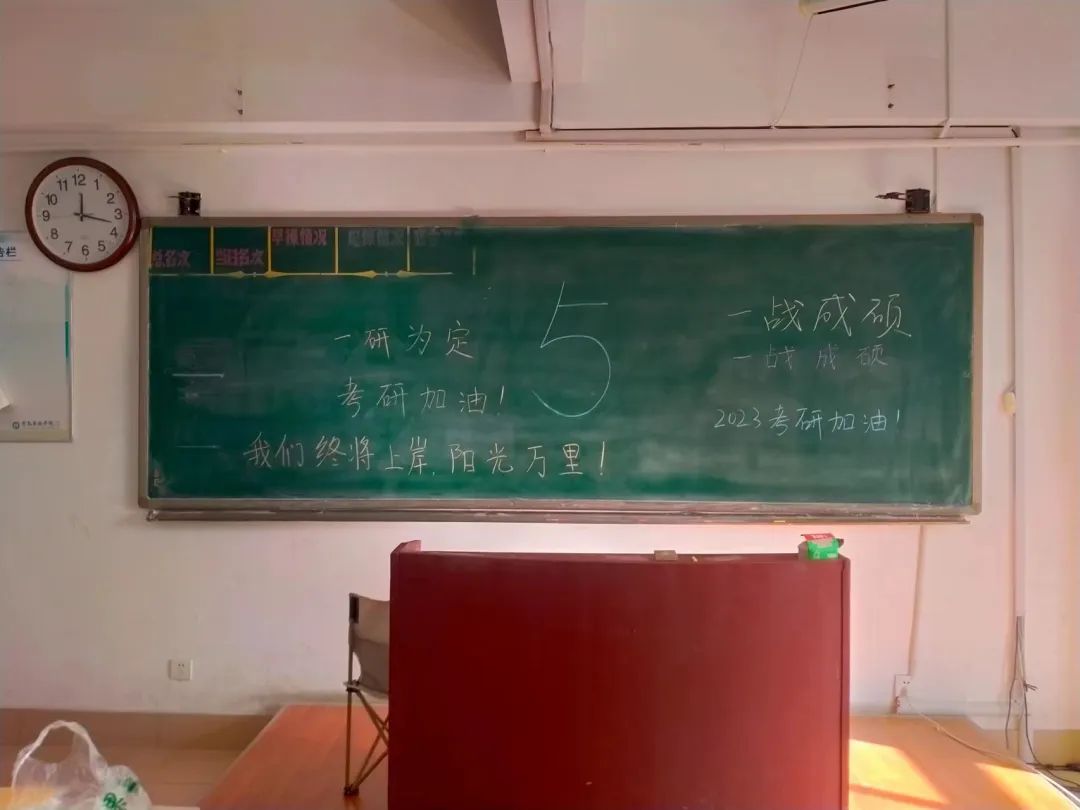 12
1
2
3
4
5
6
7
8
9
10
11
告栏
总名次
当日名次
早操情况
一研为定
考研加油!
我们终将上岸,阳光万里!
5
一战成硕
一战成硕
2023考研加油!